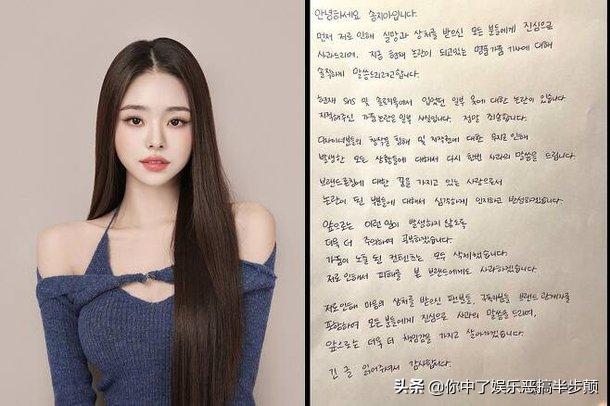 안녕하세요 송지아입니다.
먼저 저로 인해 실망과 상처를 받으신 모든 분들에게 진심으로
사과드리며, 지금 현재 논란이 되고있는 명품가품 기사에 대해
솔직하게 말씀드리려고합니다.
현재 SNS 및 솔로지옥에서 입었던 일부 옷에 대한 논란이 있습니다
지적해주신 가품논란은 일부 사실입니다. 정말 죄송합니다.
디자이너분들의 창작물 침해 및 저작권에 대한 무지로 인해
발생한 모든 상황들에 대해서 다시 한번 사과의 말씀을 드립니다.
브랜드론칭에 대한 꿈을 가지고 있는 사람으로서
논란이 된 부분들에 대해서 심각하게 인지하고 반성하겠습니다.
앞으로는 이런 일이 발생하지 않도록
더욱 더 주의하며 공부하겠습니다.
가품이 노출 된 컨텐츠는 모두 삭제했습니다.
저로 인해서 피해를 본 브랜드에게도 사과하겠습니다.
저로인해 마음의 상처를 받으신 팬분들, 구독자분들 브랜드 관계자들
포함하여 모든분들에게 진심으로 사과의 말씀을 드리며,
앞으로는 더욱 더 책임감을 가지고 살아가겠습니다.
긴 글 읽어주셔서 감사합니다.
头条 @你中了娱乐恶搞半步颠